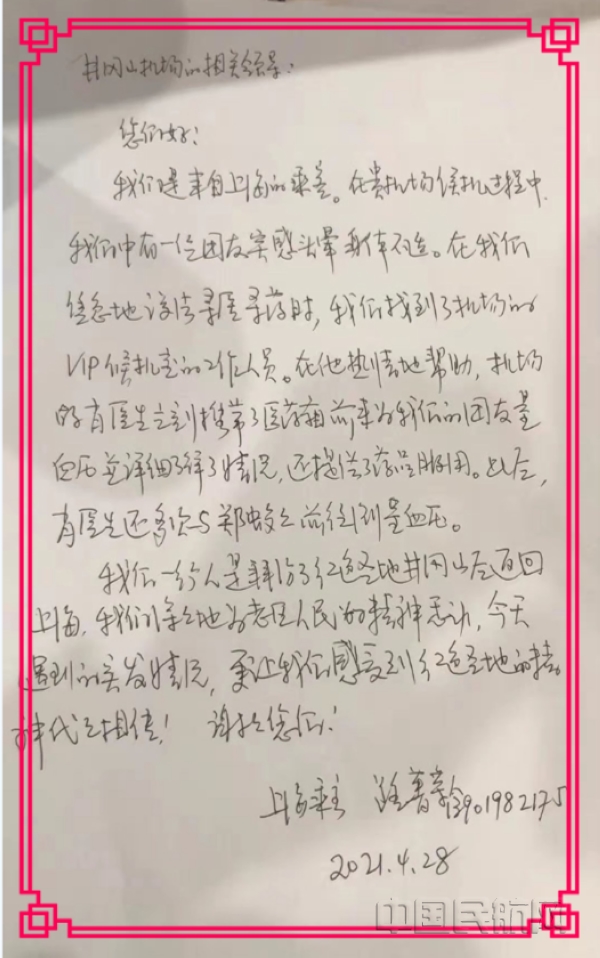 井冈山机场的相关领导:
您们好!
我们是来自上海的乘客。在贵机场候机过程中,
我们中有一位团友突感头晕身体不适。在我们
焦急地设法寻医寻药时,我们找到了机场的
VIP候机室的工作人员。在他热情地帮助,机场
的肖医生立刻携带了医药箱前来为我们的团友量
血压并详细了解了情况,还提供了药品服用。此后,
肖医生还多次与郑 前往到量血压。
我们一行人是拜访了红色圣地井冈山后返回
上海,我们 地为老区人民的精神 ,今天
遇到的突发情况,更让我们感受到红色圣地的精
神代代相传! 谢谢您们!
上海乘客 901982175
2021.4.28
中国民航网